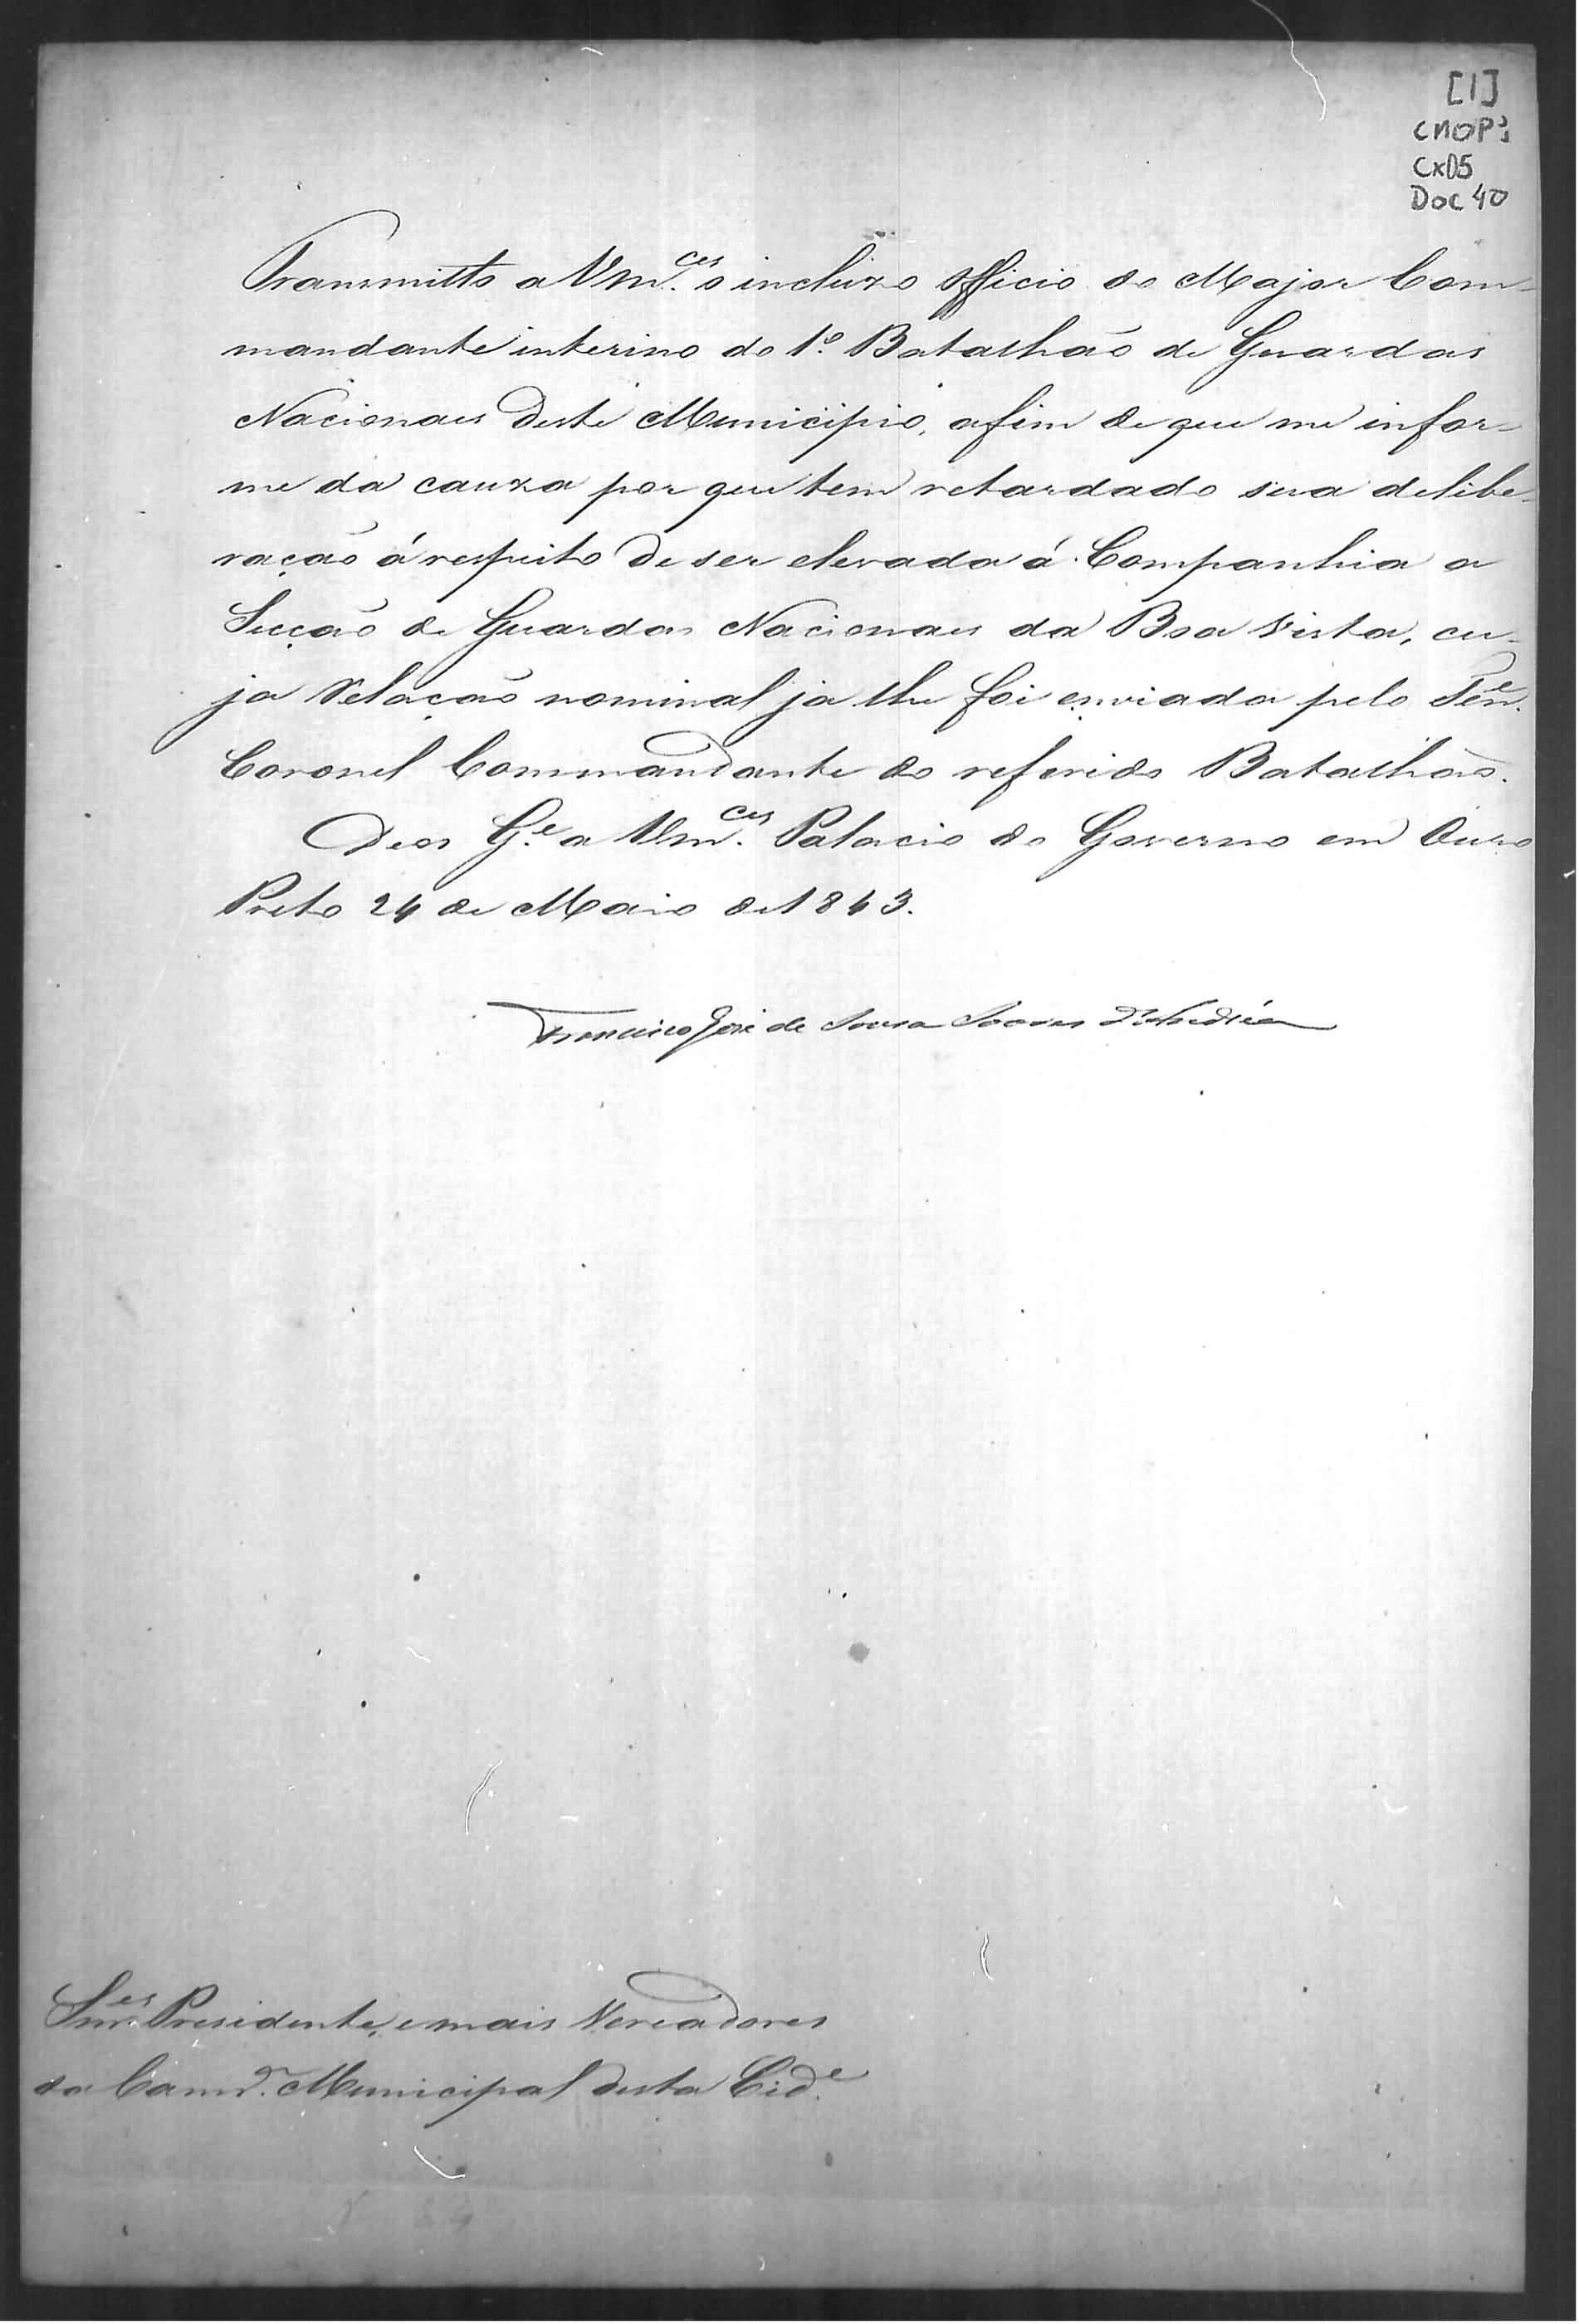 [1]
CMOP3
Cx05
Doc 40
Transmitto a Vm.ces o incluzo Officio do Major Com-
mandante interino do 1º. Batalhão de Guardas
Nacionaes deste Municipio, afim de que me infor-
me da cauza por que tem retardado sua delibe-
ração á respeito de ser elevada á Companhia a
Secção de Guardas Nacionaes da Boa Vista, cu-
ja Relação nominal ja lhe foi enviada pelo Ten.e
Coronel Commandante do referido Batalhão.
Deos G.e a Vm.ces Palacio do Governo em Ouro
Preto 24 de Maio de 1843.
Francisco José de Sousa Soares d'Andréa
Snr.es Presidente, e mais Vereadores
da Camr.a Municipal desta Cid.e